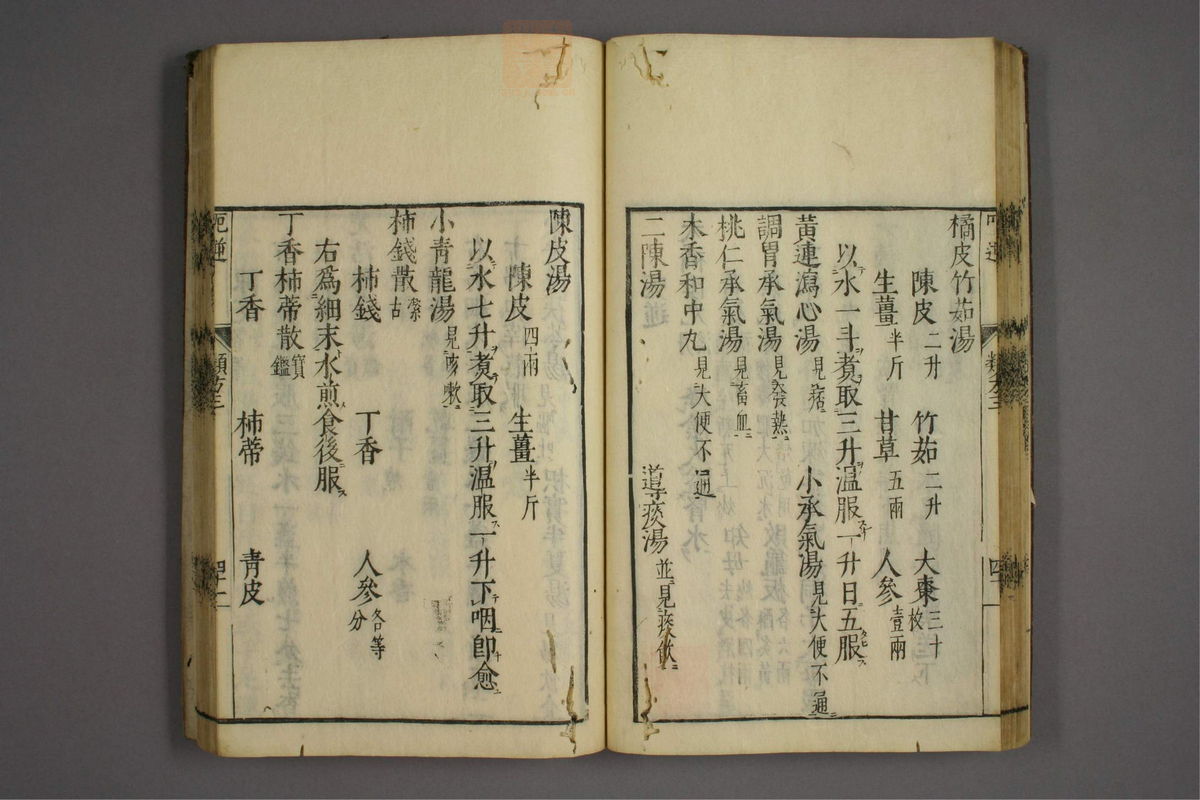 橘皮竹茹湯
陳皮二升 竹茹二升 大棗三十枚
生薑半斤 甘草五兩 人參壹兩
以水一斗煮取三升温服一升日五服
黄連瀉心湯見痞 小承氣湯見大便不通
調胃承氣湯見發熱
桃仁承氣湯見畜血
木香和中丸見大便不通
二陳湯 導痰湯並見痰飲
陳皮湯
陳皮四兩 生薑半斤
以水七升煮取三升温服一升下咽即愈
小青龍湯見咳嗽
柿錢散潔古
柿錢 丁香 人參各等分
右爲細末水煎食後服
丁香柿蒂散寶鑑
丁香 柿蒂 青皮
呃逆 類方三